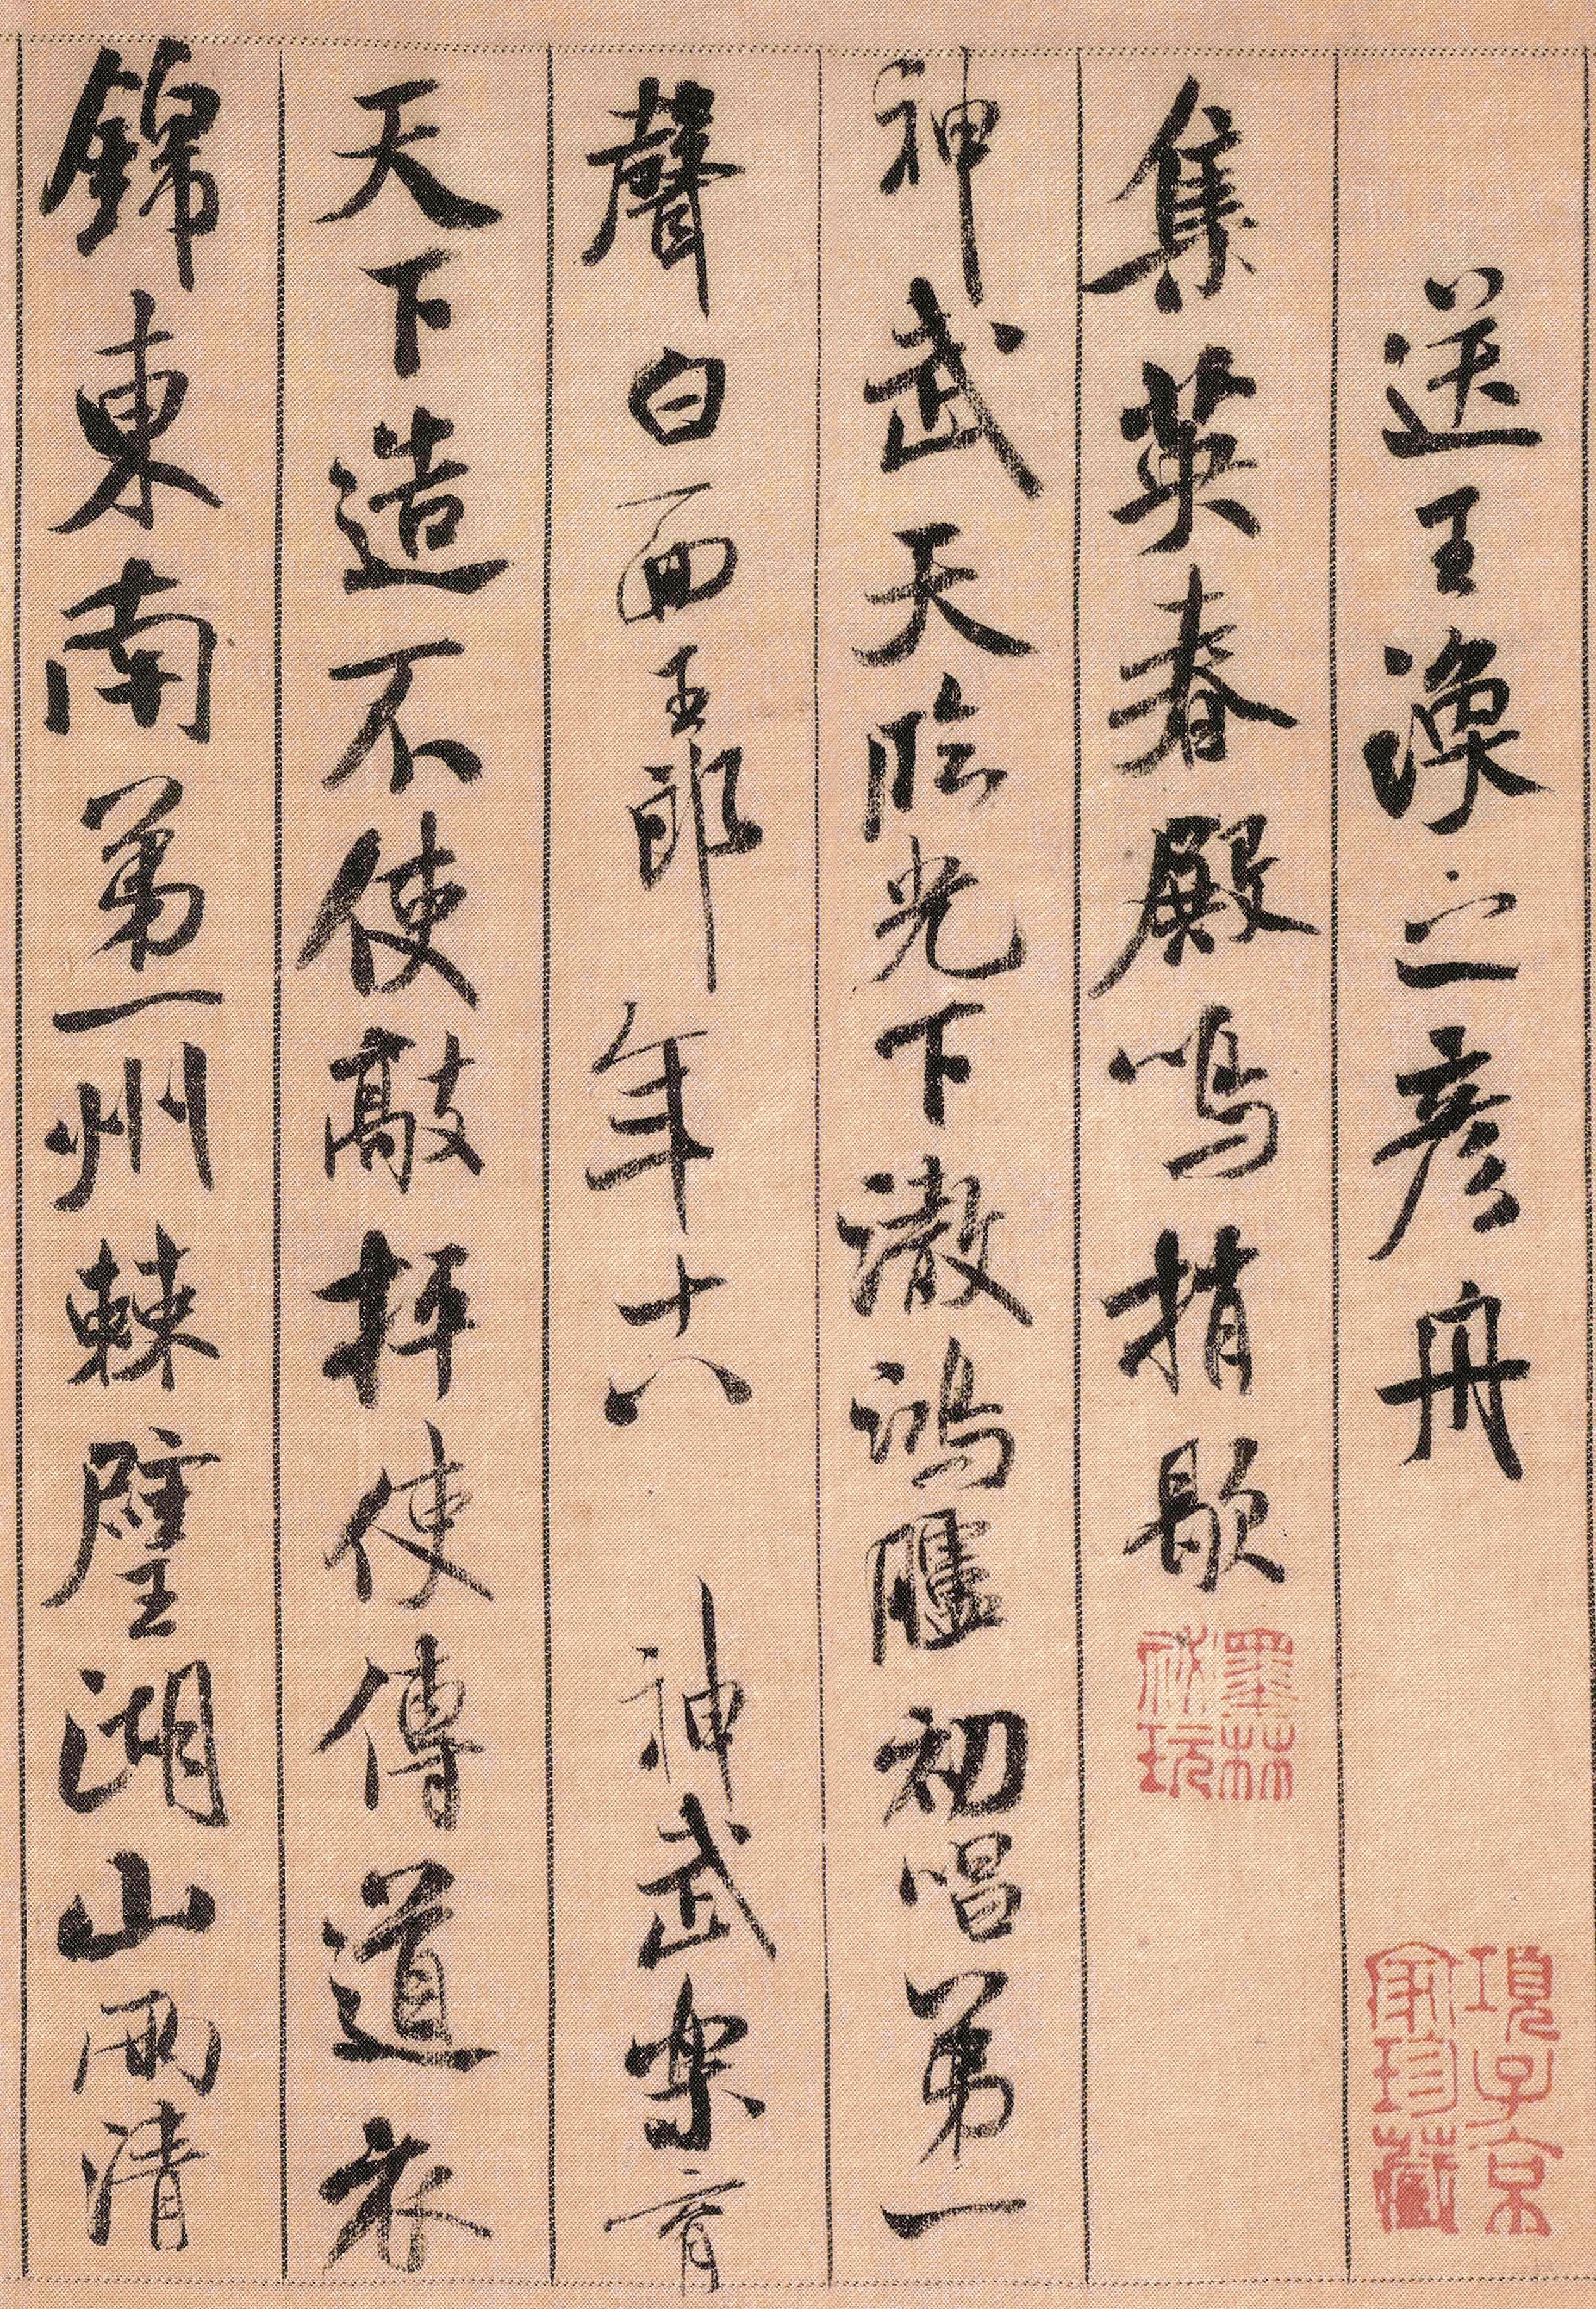 送王渙之彥舟
集英春殿鳴捎歇
神武天臨光下澈鴻臚初唱第一
聲白面王郎年十八神武樂育
天下造不使敲抨使傳道衣
錦東南第一州棘璧湖山兩清
墨林祕玩
項子京家珍藏